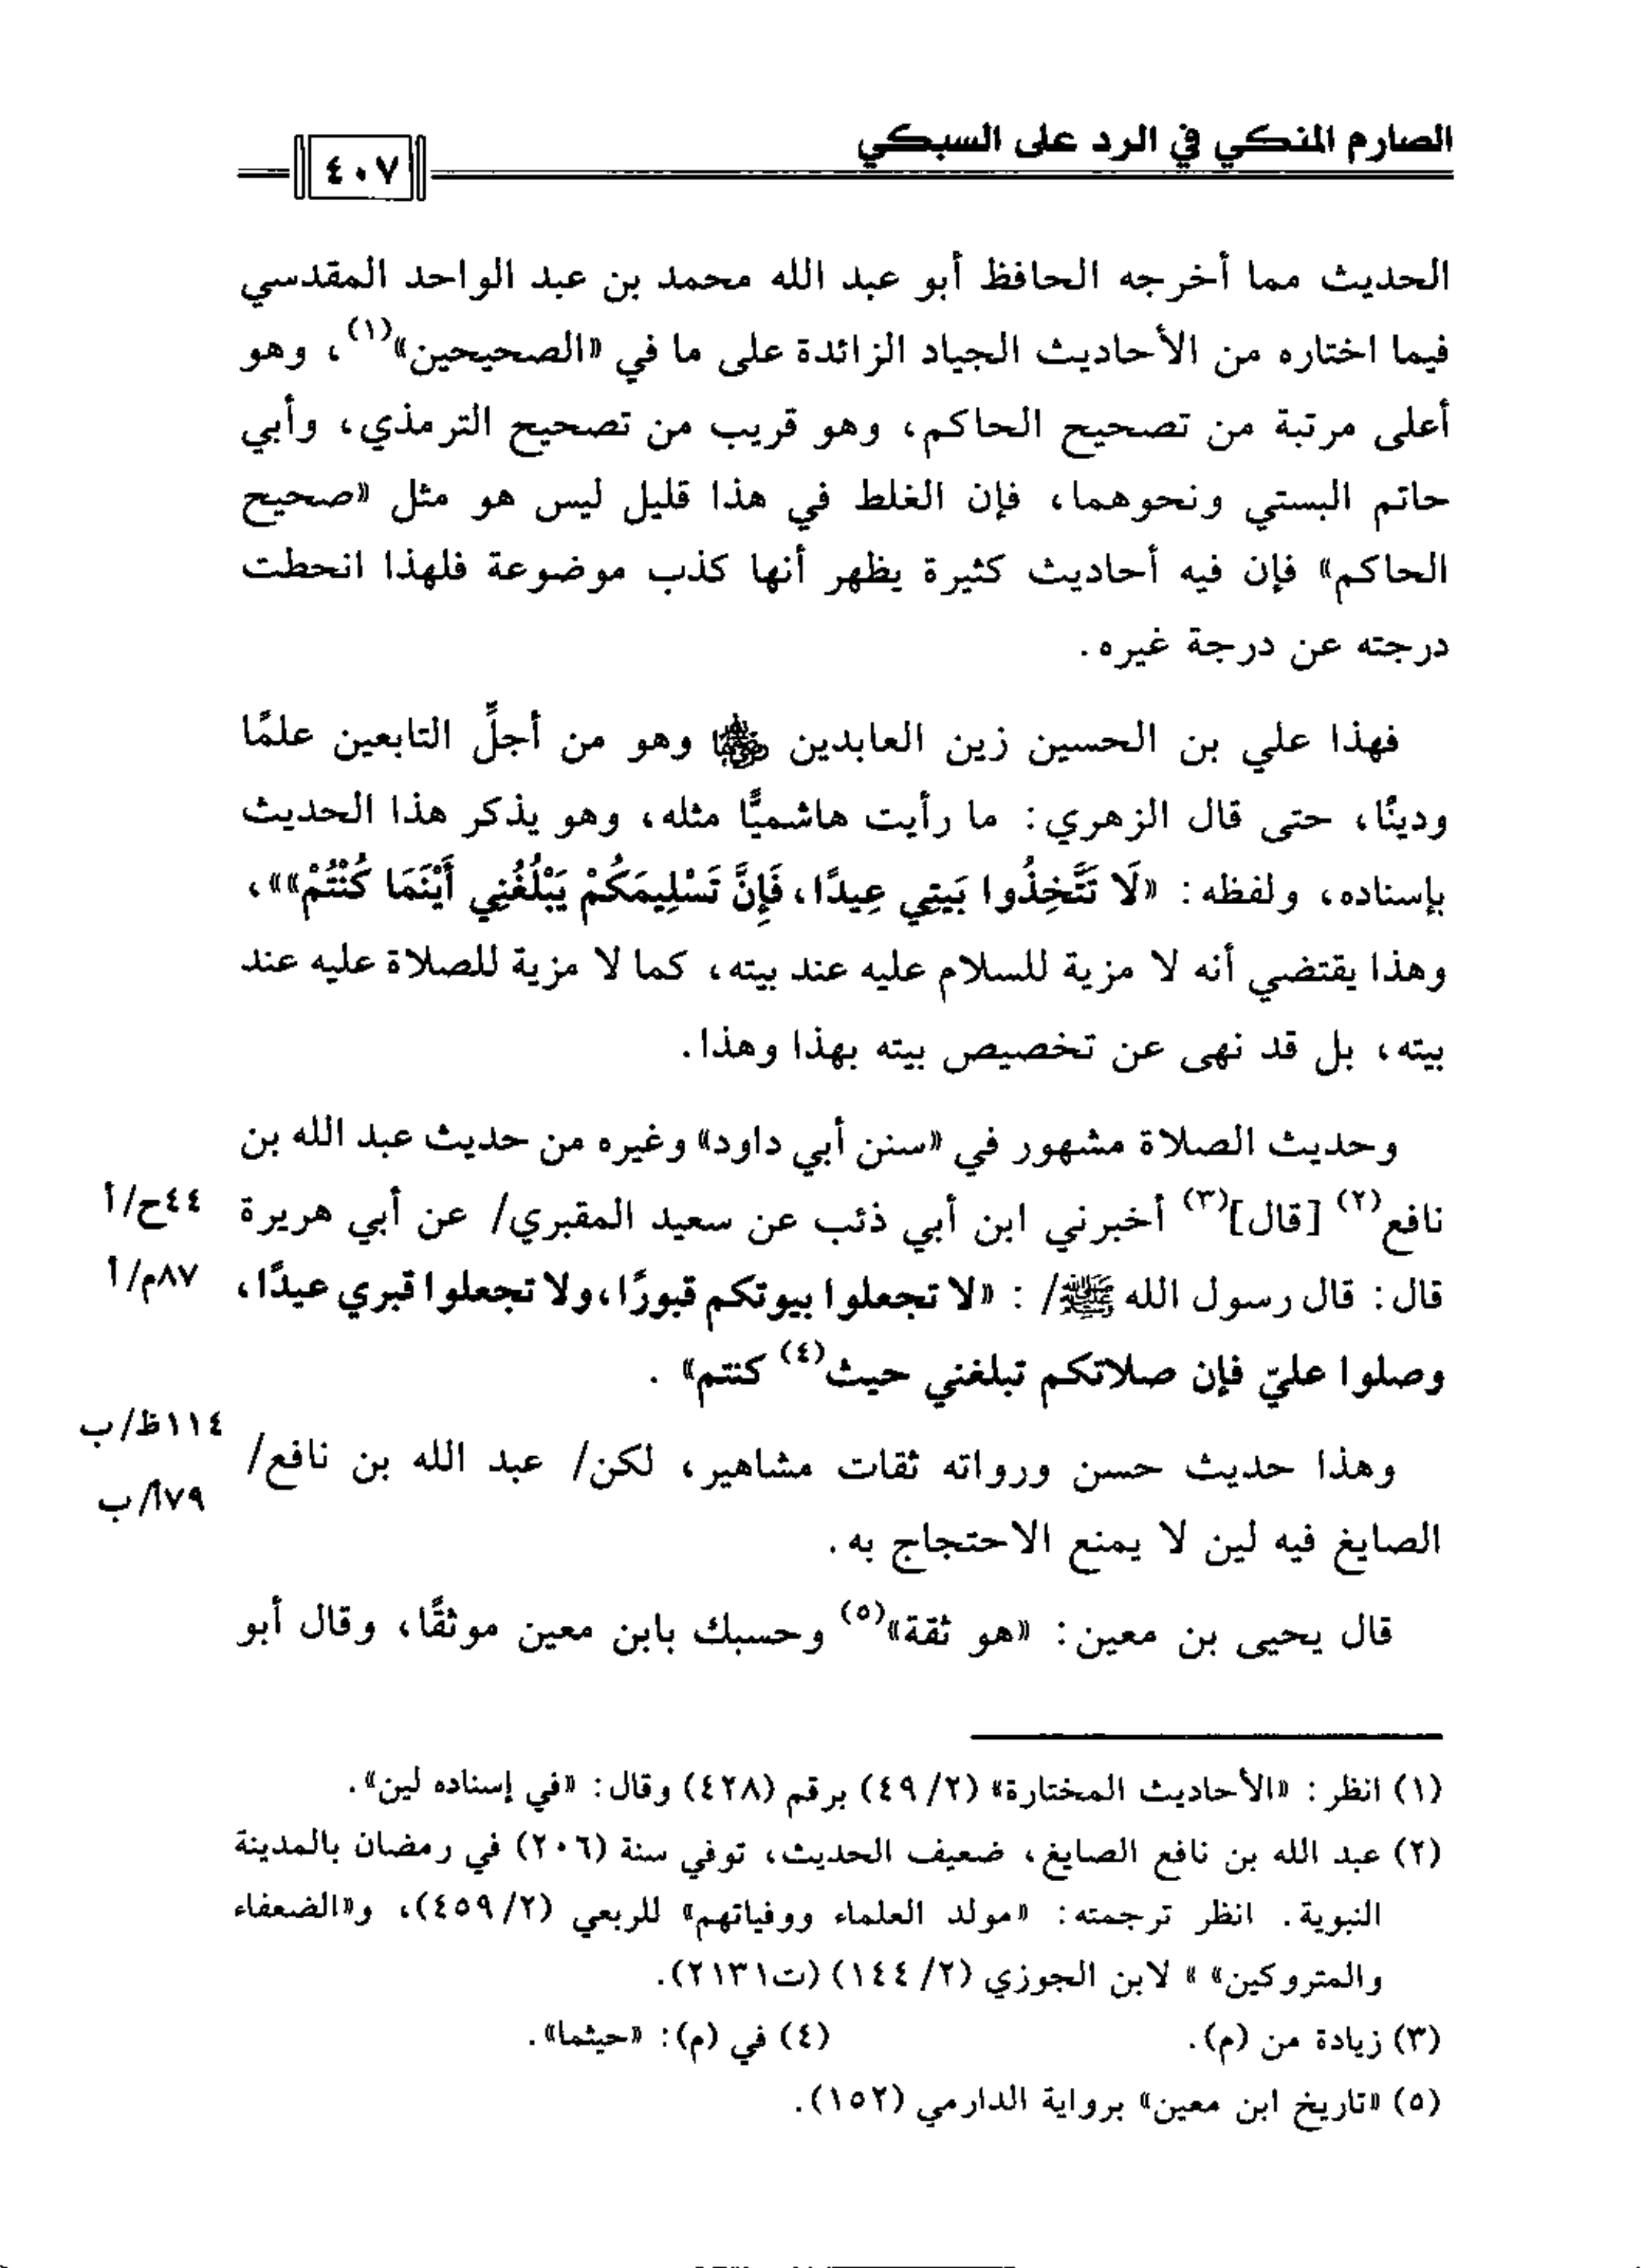 الصارم المنكي في الرد على السبكي
٤٠٧
الحديث مما أخرجه الحافظ أبو عبد الله محمد بن عبد الواحد المقدسي
فيما اختاره من الأحاديث الجياد الزائدة على ما في «الصحيحين»(١)، وهو
أعلى مرتبة من تصحيح الحاكم، وهو قريب من تصحيح الترمذي، وأبي
حاتم البستي ونحوهما، فإن الغلط في هذا قليل ليس هو مثل «صحيح
الحاكم» فإن فيه أحاديث كثيرة يظهر أنها كذب موضوعة فلهذا انحطت
درجته عن درجة غيره.
فهذا علي بن الحسين زين العابدين رضي الله عنهما وهو من أجلِّ التابعين علمًا
ودينًا، حتى قال الزهري: ما رأيت هاشميًّا مثله، وهو يذكر هذا الحديث
بإسناده، ولفظه: «لَا تَتَّخِذُوا بَيتِي عِيدًا، فَإِنَّ تَسْلِيمَكُمْ يَبْلُغُنِي أَيْنَمَا كُنْتُمْ»»،
وهذا يقتضي أنه لا مزية للسلام عليه عند بيته، كما لا مزية للصلاة عليه عند
بيته، بل قد نهى عن تخصيص بيته بهذا وهذا.
وحديث الصلاة مشهور في «سنن أبي داود» وغيره من حديث عبد الله بن
نافع(٢) [قال](٣) أخبرني ابن أبي ذئب عن سعيد المقبري/ عن أبي هريرة
٤٤ح/أ
قال: قال رسول الله ﷺ/ : «لا تجعلوا بيوتكم قبورًا، ولا تجعلوا قبري عيدًا،
٨٧م/أ
وصلوا عليّ فإن صلاتكم تبلغني حيث(٤) كنتم» .
وهذا حديث حسن ورواته ثقات مشاهير، لكن/ عبد الله بن نافع/
١١٤ظ/ب
٧٩أ/ب
الصايغ فيه لين لا يمنع الاحتجاج به.
قال يحيى بن معين: «هو ثقة»(٥) وحسبك بابن معين موثقًا، وقال أبو
(١) انظر: «الأحاديث المختارة» (٢/ ٤٩) برقم (٤٢٨) وقال: «في إسناده لين».
(٢) عبد الله بن نافع الصايغ، ضعيف الحديث، توفي سنة (٢٠٦) في رمضان بالمدينة
النبوية. انظر ترجمته: «مولد العلماء ووفياتهم» للربعي (٢/ ٤٥٩)، و«الضعفاء
والمتروكين» » لابن الجوزي (٢/ ١٤٤) (ت٢١٣١).
(٣) زيادة من (م).
(٤) في (م): «حيثما».
(٥) «تاريخ ابن معين» برواية الدارمي (١٥٢).